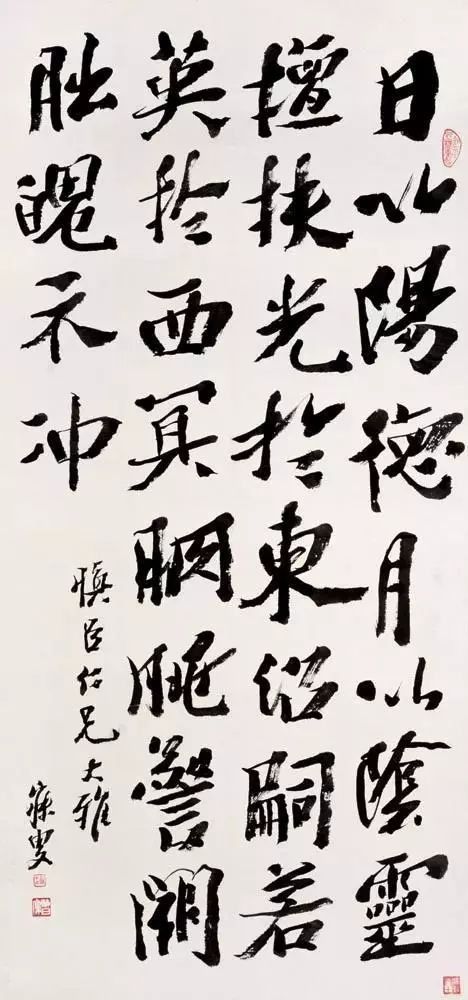 日以陽德月以陰靈
擅扶光於東沼嗣若
英於西冥朒朓警闕
朏魄示冲
慎臣仁兄大雅
寐叟